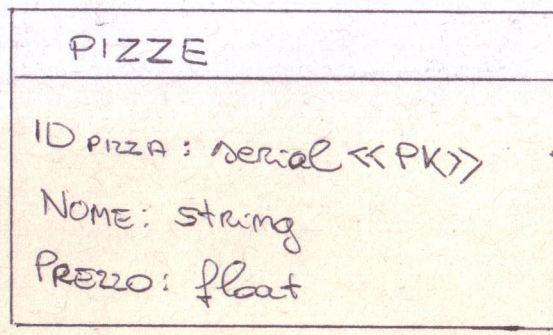 PIZZE
ID PIZZA: serial <<PK>>
NOME: string
PREZZO: float